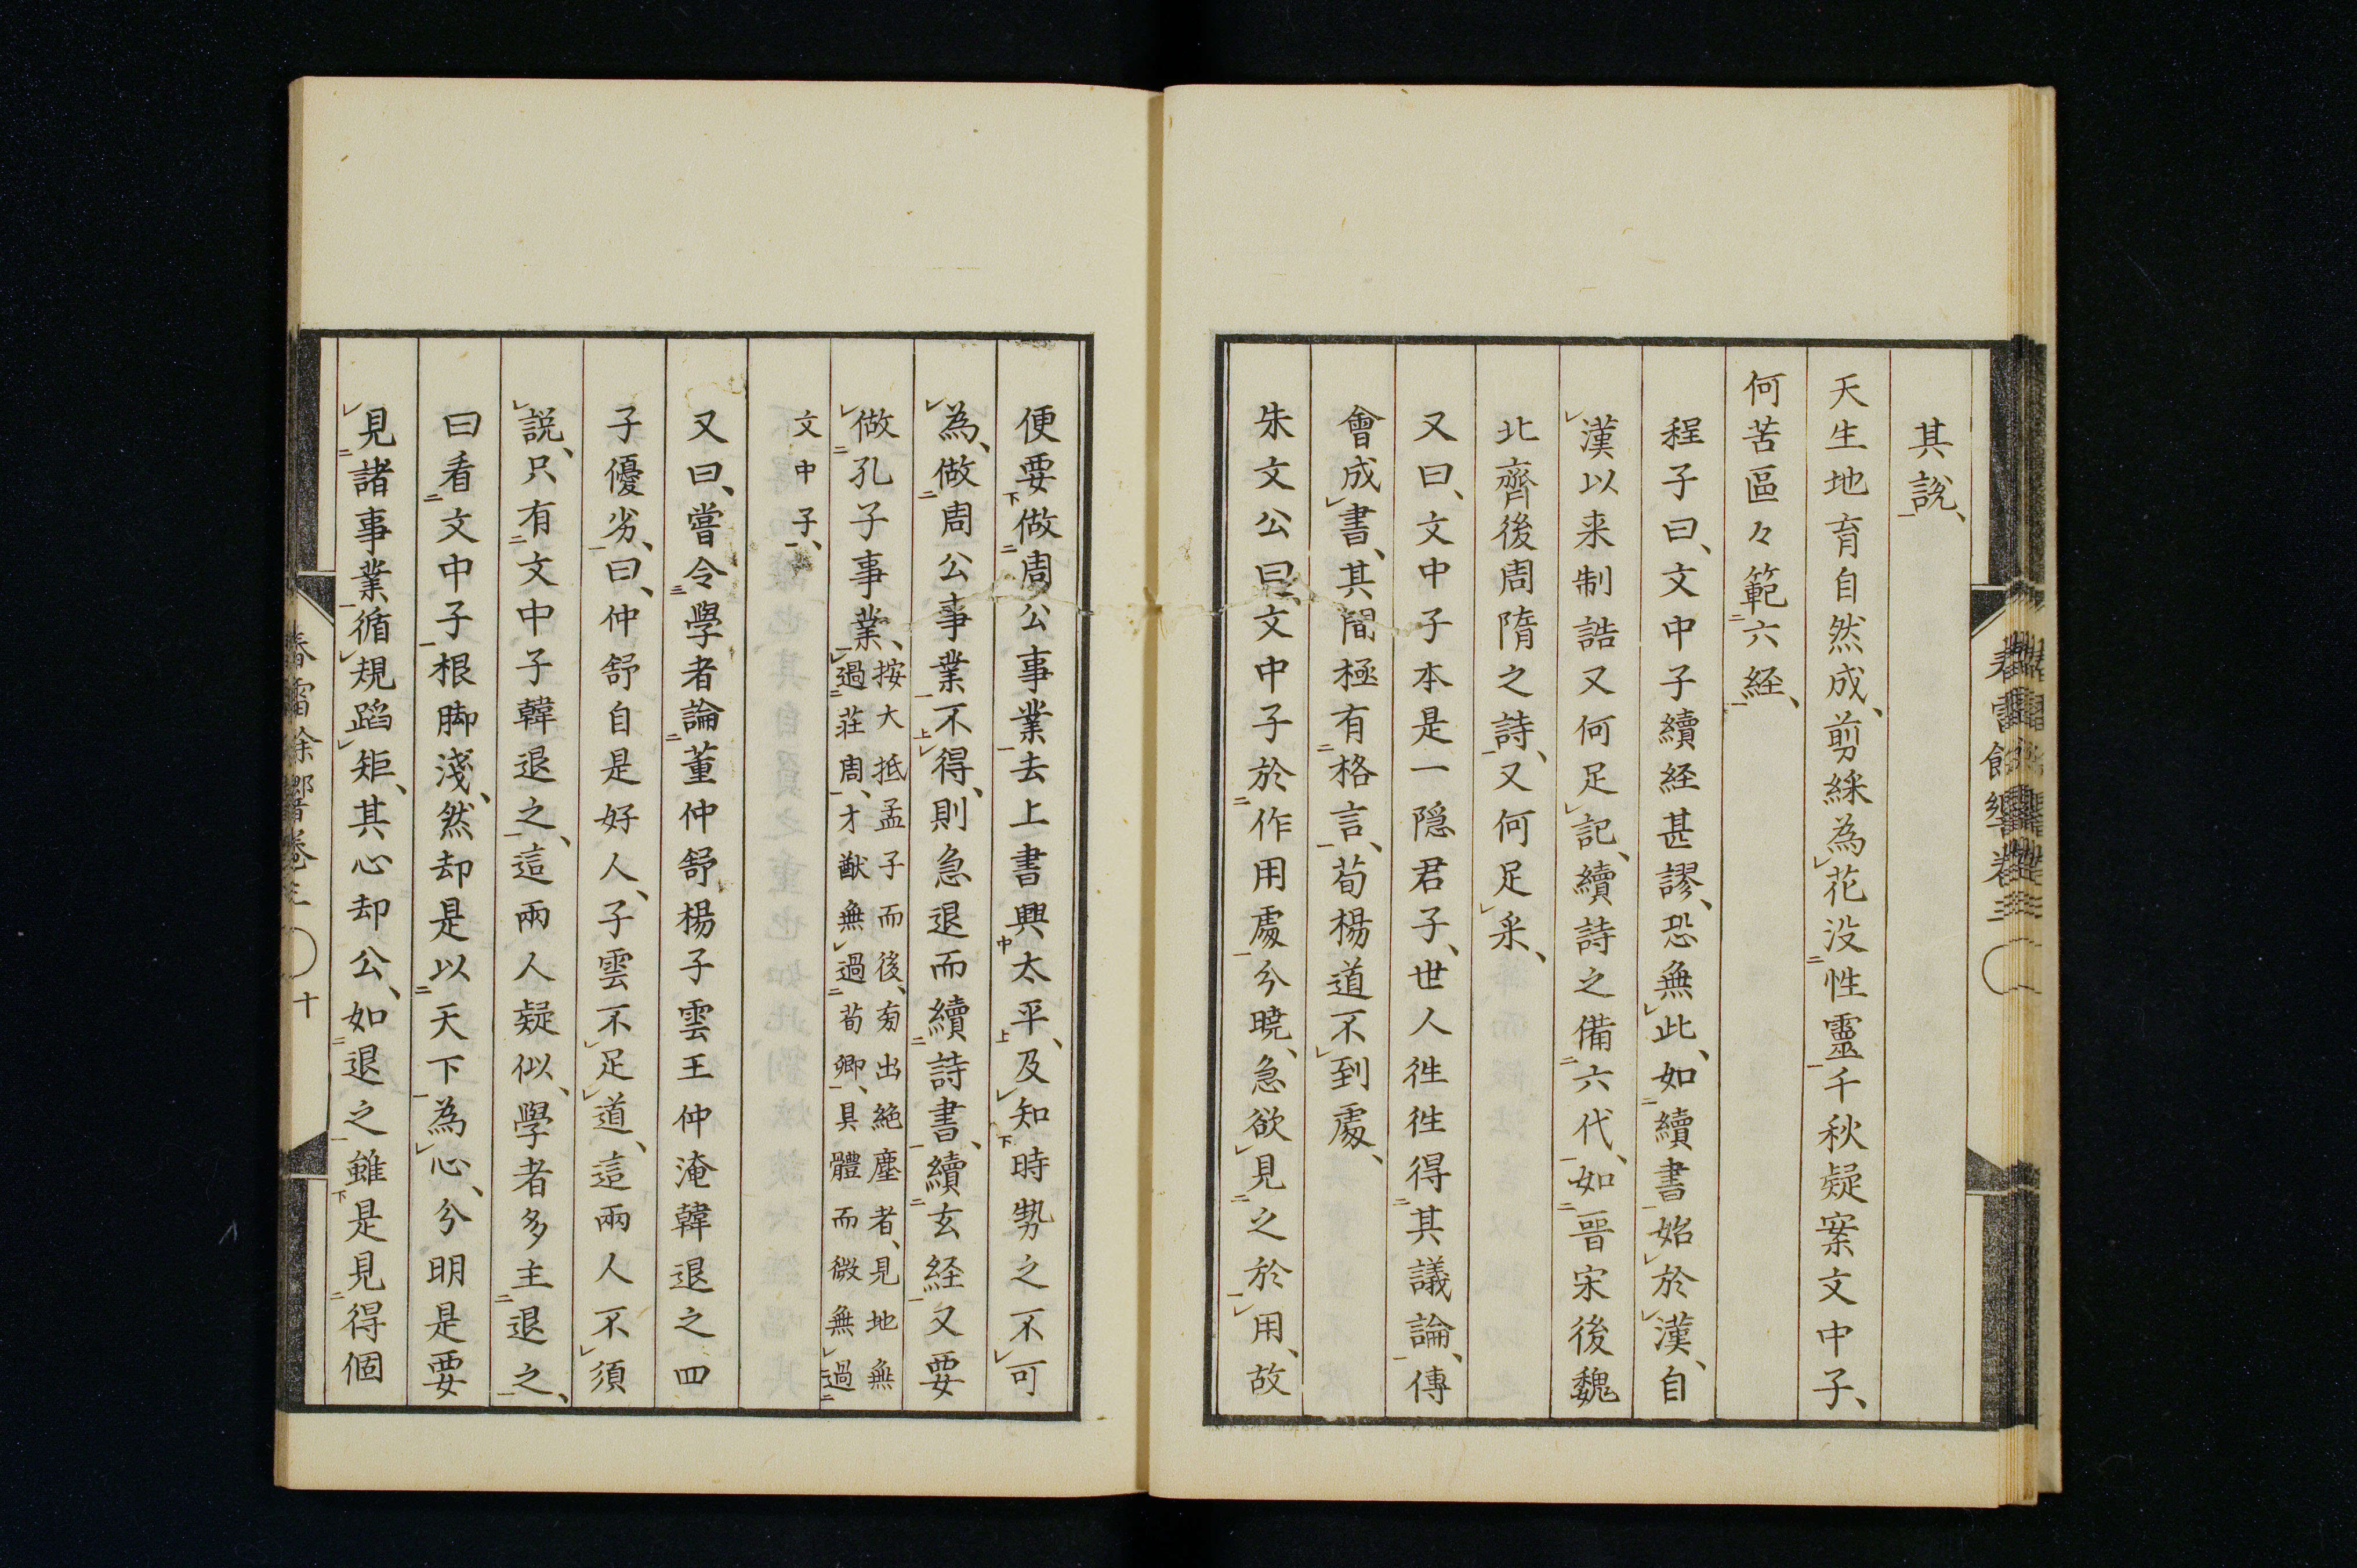 其說、
天生地育自然成、剪綵為花没性靈千秋疑案文中子、
何苦區々範六経、
程子曰、文中子續経甚謬、恐無此、如續書始於漢、自
漢以来制誥又何足記、續詩之備六代、如晉宋後魏
北齊後周隋之詩、又何足采、
又曰、文中子本是一隠君子、世人徃徃得其議論、傳
會成書、其間極有格言、荀楊道不到處、
朱文公曰、文中子於作用處兮曉、急欲見之於用、故
便要做周公事業去上書興太平、及知時勢之不可
為、做周公事業不得、則急退而續詩書、續玄経又要
做孔子事業、
按大抵孟子而後、有出絶塵者、見地無
過莊周、才猷無過荀卿、具體而微無過
文中子、
又曰、嘗令學者論董仲舒楊子雲王仲淹韓退之四
子優劣、曰、仲舒自是好人、子雲不足道、這兩人不須
説、只有文中子韓退之、這兩人疑似、學者多主退之、
曰看文中子根脚淺、然却是以天下為心、兮明是要
見諸事業循規蹈矩、其心却公、如退之雖是見得個
春雷餘響巻三
十